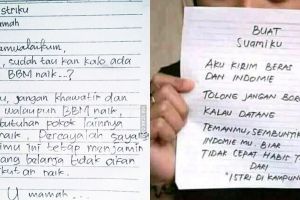 striku
mah
mualaikum,
, sudah tau kan kalo ada
BBM naik...?
u, jangan khawatir dan
walaupun BBM naik
butuhan pokok lainnya
naik. Percayalah sayang
imu ini tetap menjamin
ang belanja tidak akan
kutan naik.
U mamah...
BUAT
SUAMIKU
AKU KIRIM BERAS
DAN INDOMIE
TOLONG JANGAN BOR
KALAU DATANG
TEMANMU, SEMBUNYI
INDOMIE MU BIAR
TIDAK CEPAT HABIS T
DARI
"ISTRI DI KAMPUN